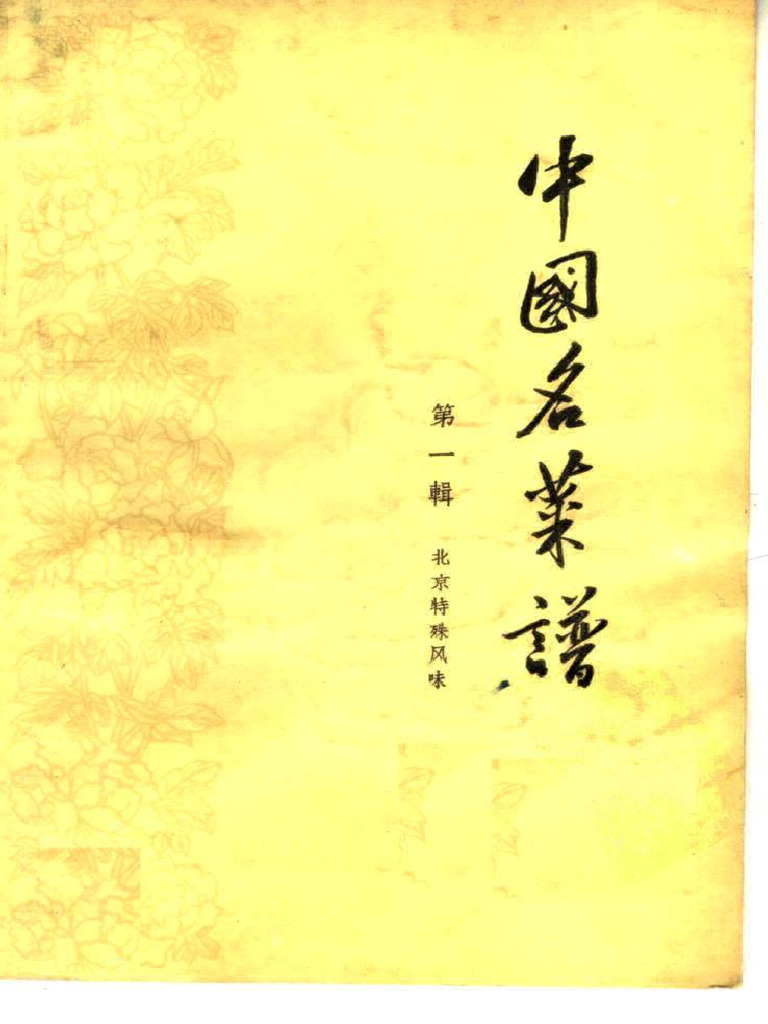 中國名菜譜
第一輯 北京特殊风味